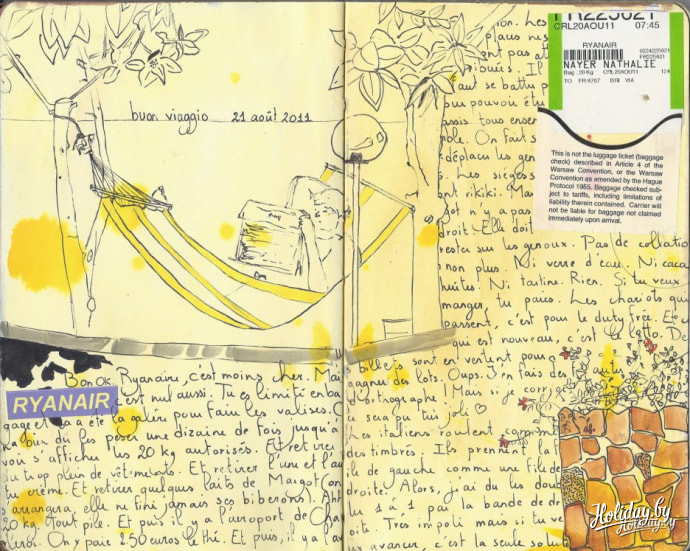 buon viaggio 21 août 2011
RYANAIR
Bon ok Ryanaire, c'est moins cher. Mai
c'est nul aussi. Tu es limité en ba
gage et ça a été la galère pour faire les valises.
bien dû les peser une dizaine de fois jusqu'à
voir s'afficher les 20 kg autorisés. Et retirer
un truc plein de vêtements. Et retirer l'une et l'au
tre crème. Et retirer quelques laits de Margot (on
s'arrangera, elle ne finit jamais ses biberons). Ah!
20 kg. Tout pile. Et puis il y a l'aéroport de Cha
leroi. On y paie 2.50 euros le thé. Et puis, il y a l'av
ion. Les
places ne s
ont pas at
tribuées. Il
faut se battre p
our pouvoir êt
assis tous ensem
ble. On fait s
e déplacer les gen
s. Les sièges s
ont rikiki. Mar
got n'y a pas
droit. Elle doit
rester sur les genoux. Pas de collatio
n non plus. Ni verre d'eau. Ni caca
huètes. Ni tartine. Rien. Si tu veux
manger, tu paies. Les chariots qui
passent, c'est pour le duty free. Et c
qui est nouveau, c'est le lotto. De
s billets sont en vente pour
gagner des lots. Oups. J'en fais des fautes
d'orthographe! Mais si je corrige
ce sera plus joli
Les italiens roulent comme
des timbrés. Ils prennent la f
ile de gauche comme une file de
droite. Alors, j'ai dû les doub
ler 1 à 1 par la bande de d
roite. Très impoli mais si tu ve
ux avancer, c'est la seule solut
FR225621
CRL20AOU11 07:45
RYANAIR
NAYER NATHALIE
Bag: 20 Kg CRL20AOU11
TO FR8767 BRI VIA
This is not the luggage ticket (baggage
check) described in Article 4 of the
Warsaw Convention, or the Warsaw
Convention as amended by the Hague
Protocol 1955. Baggage checked sub-
ject to tariffs, including limitations of
liability therein contained. Carrier will
not be liable for baggage not claimed
immediately upon arrival.
Holiday.by
Holiday.by